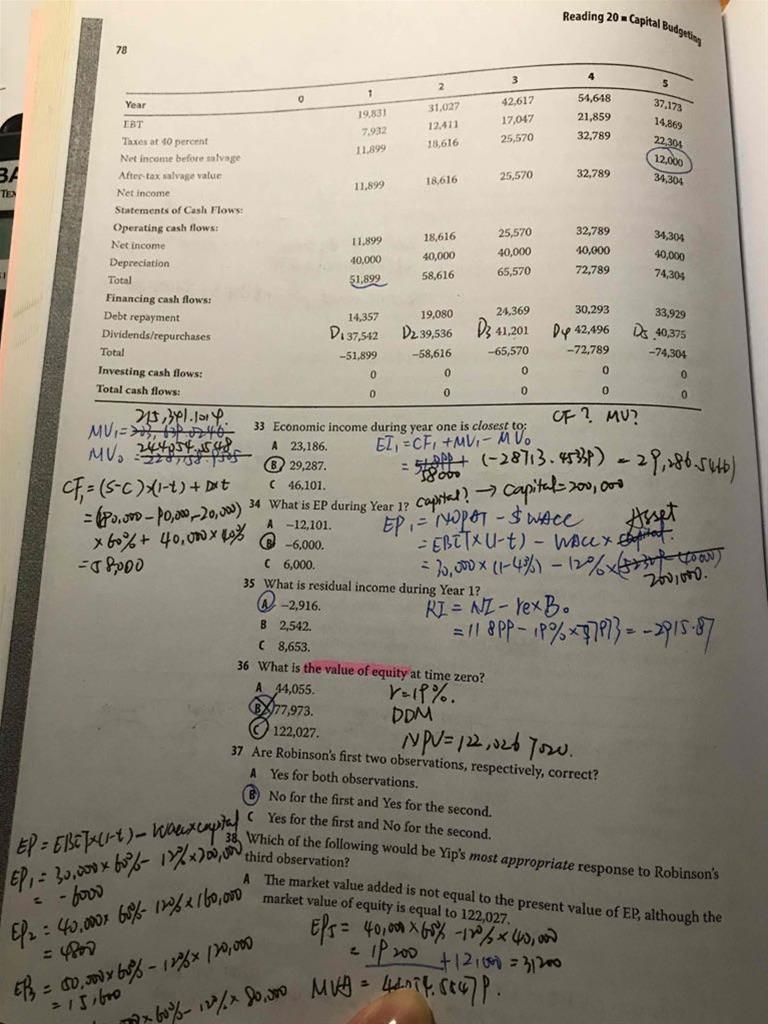 Reading 20 ■ Capital Budgeting
78
Year 0 1 2 3 4 5
EBT 19,831 31,027 42,617 54,648 37,173
Taxes at 40 percent 7,932 12,411 17,047 21,859 14,869
Net income before salvage 11,899 18,616 25,570 32,789 22,304
After-tax salvage value 12,000
Net income 11,899 18,616 25,570 32,789 34,304
Statements of Cash Flows:
Operating cash flows:
Net income 11,899 18,616 25,570 32,789 34,304
Depreciation 40,000 40,000 40,000 40,000 40,000
Total 51,899 58,616 65,570 72,789 74,304
Financing cash flows:
Debt repayment 14,357 19,080 24,369 30,293 33,929
Dividends/repurchases D1 37,542 D2 39,536 D3 41,201 D4 42,496 D5 40,375
Total −51,899 −58,616 −65,570 −72,789 −74,304
Investing cash flows: 0 0 0 0 0
Total cash flows: 0 0 0 0 0
CF? MV?
33 Economic income during year one is closest to:
A 23,186.
B 29,287.
C 46,101.
215,341.1014
MV1=
244054.5548
MV0=
EI1=CF1+MV1−MV0
= 58000 (−28713.45339) = 29,286.5466)
CF1=(S-C)×(1-t)+D×t
=(180,000−90,000−20,000)
×60%+40,000×40%
=58,000
34 What is EP during Year 1? capital? → capital=200,000
A −12,101.
B −6,000.
C 6,000.
EP1=NOPAT−$WACC
Asset
=EBIT×(1-t)−WACC×capital.
=30,000×(1-4%)−12%×
200,000.
35 What is residual income during Year 1?
A −2,916.
B 2,542.
C 8,653.
RI=NI−re×B0
=11899−19%×77973=−2915.87
36 What is the value of equity at time zero?
A 44,055.
B 77,973.
C 122,027.
r=19%.
DDM
NPV=122,026.7020.
37 Are Robinson's first two observations, respectively, correct?
A Yes for both observations.
B No for the first and Yes for the second.
C Yes for the first and No for the second.
38 Which of the following would be Yip's most appropriate response to Robinson's
third observation?
A The market value added is not equal to the present value of EP, although the
market value of equity is equal to 122,027.
EP=EBIT×(1-t)−WACC×capital
EP1=30,000×60%−12%×200,000
=−6000
EP2=40,000×60%−12%×160,000
=4800
EP3=50,000×60%−12%×120,000
=15,600
×60%−12%×80,000
EP5=40,000×60%−12%×40,000
=19200 +12,000=31200
MVA=